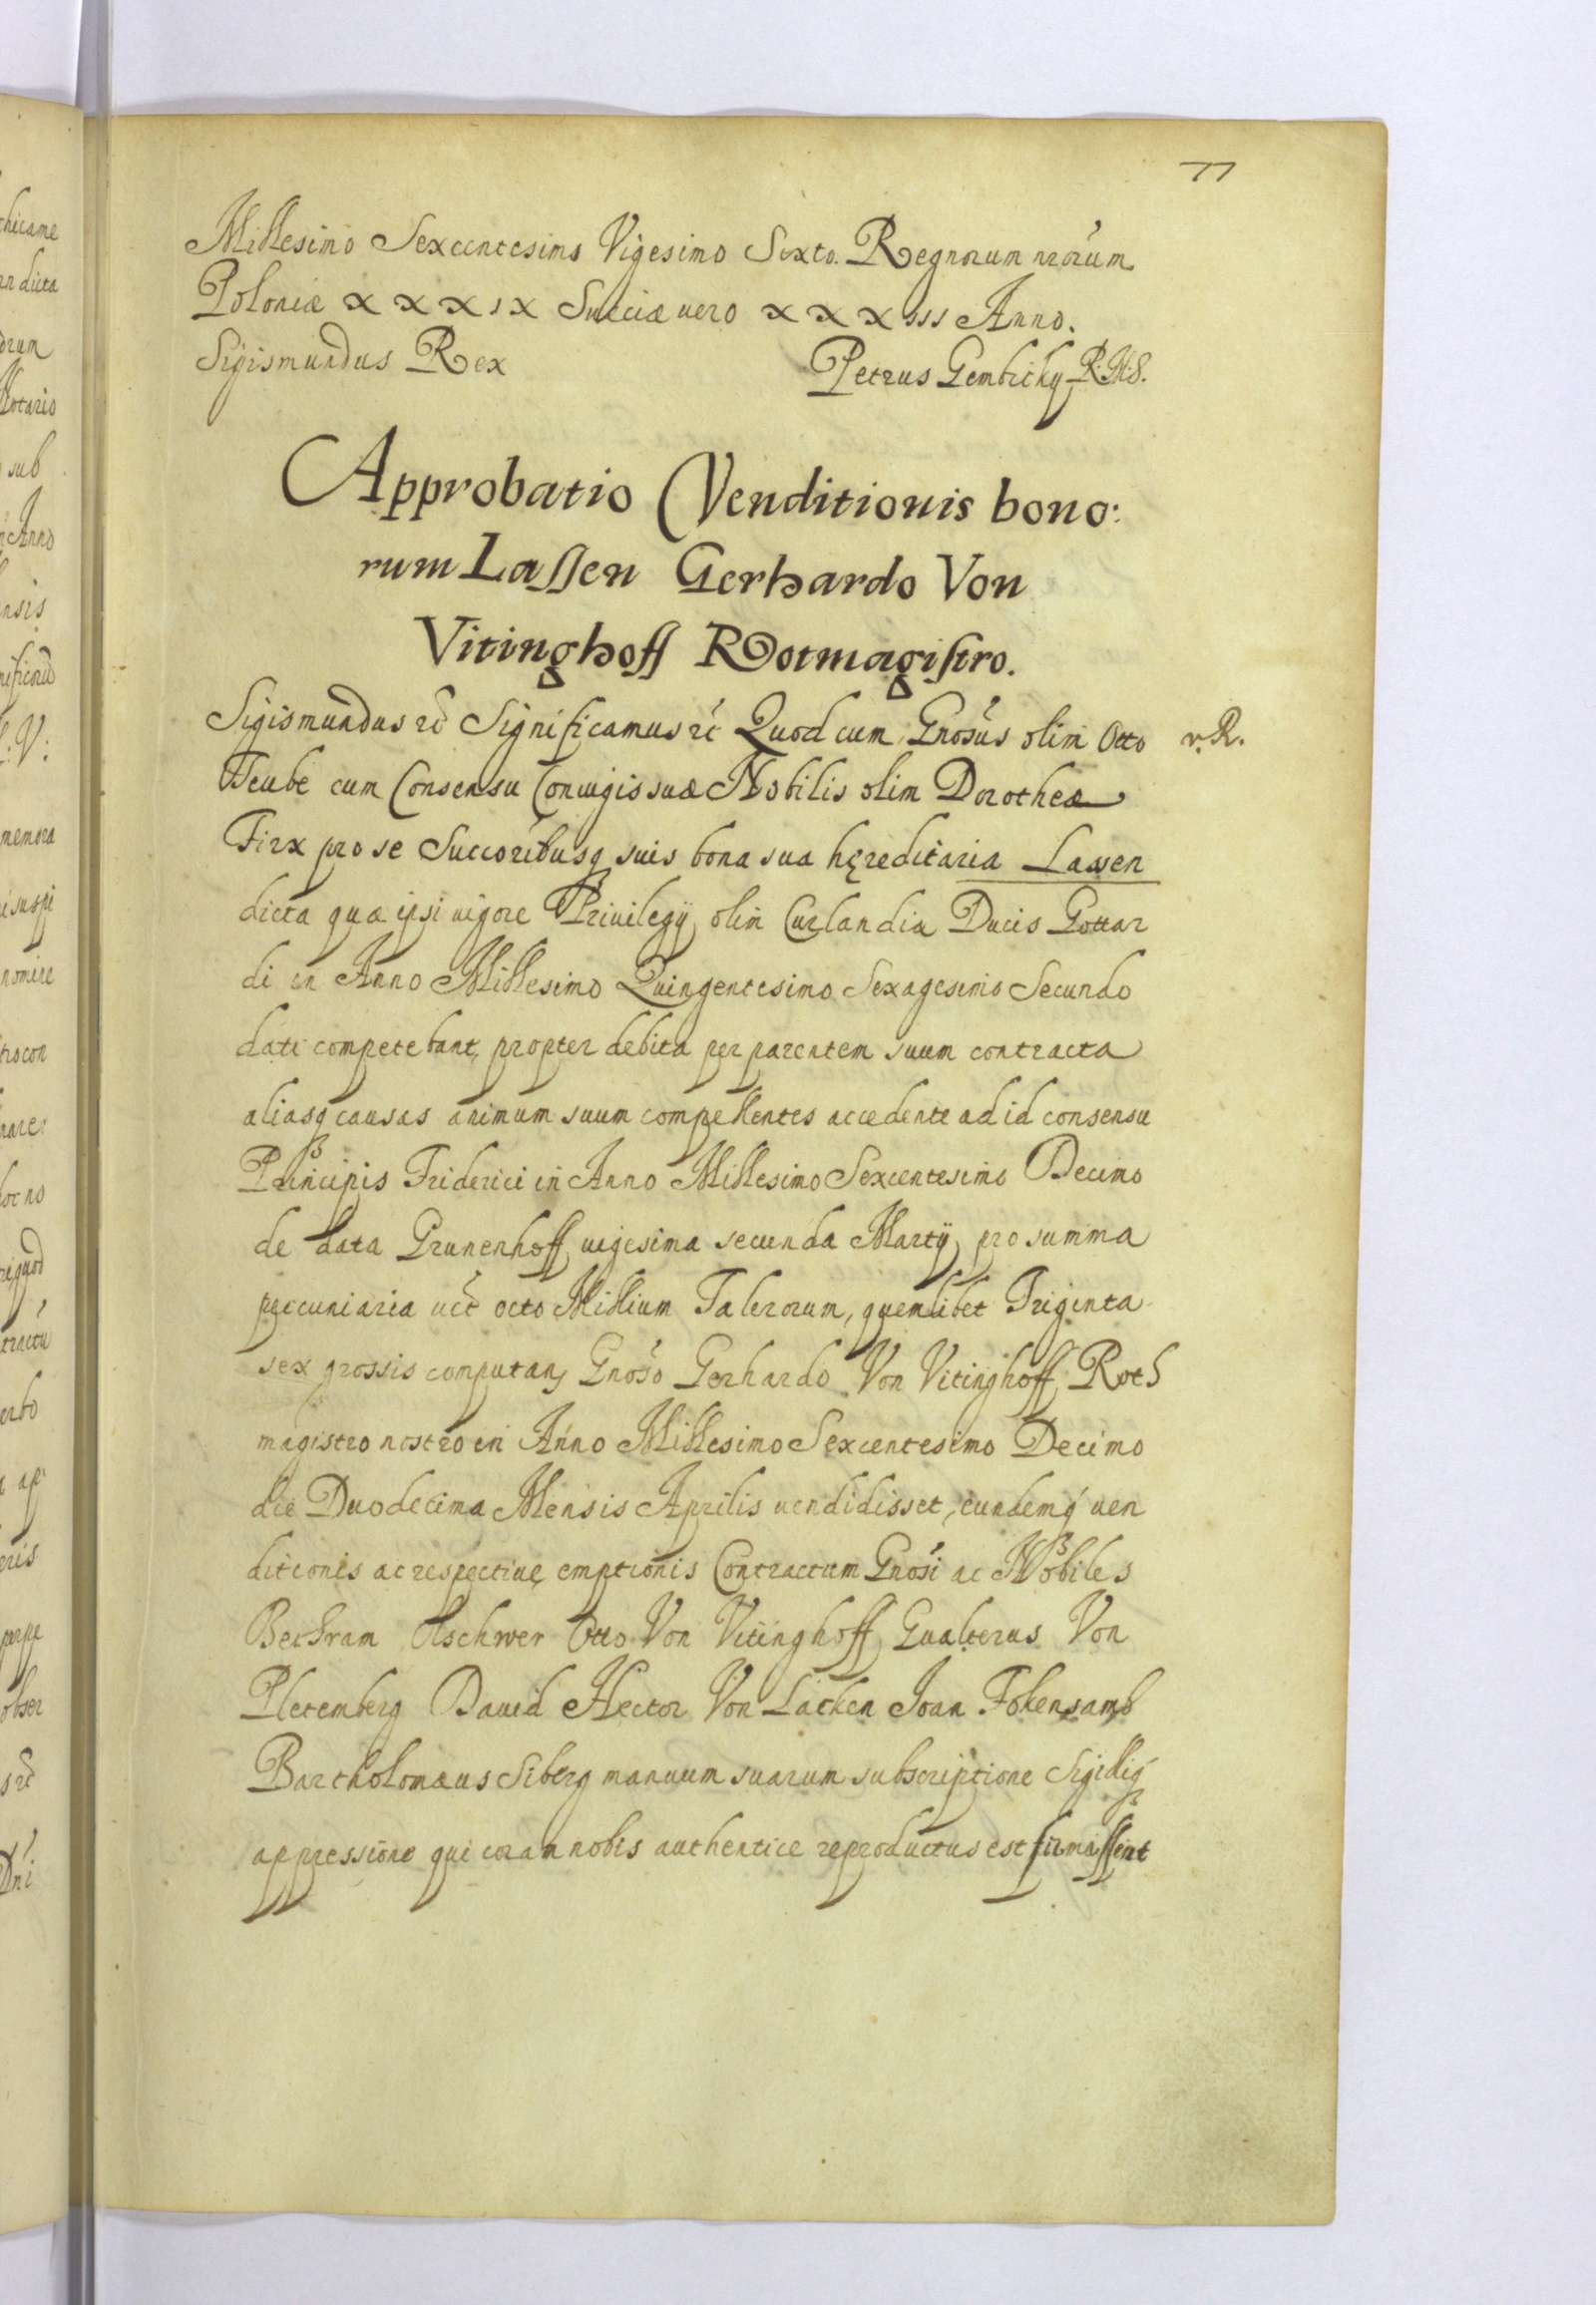 77
Millesimo Sexcentesimo Vigesimo Sexto. Regnorum nrorum
Poloniæ xxxix Sueciæ uero xxxiii Anno.
Sigismundus Rex Petrus Gembicky R.M.S.
Approbatio Venditionis bono:
rum Lassen Gerhardo Von
Vitinghoff Rotmagistro.
Sigismundus etc Significamus etc Quod cum Gnosus olim Otto v. R.
Teube cum Consensu Coniugis suæ Nobilis olim Dorotheæ
Firx pro se Succoribusq suis bona sua hęreditaria Lassen
dicta quæ ipsi uigore Priuilegij olim Curlandiæ Ducis Gottar
di in Anno Millesimo Quingentesimo Sexagesimo Secundo
dati competebant, propter debita per parentem suum contracta
aliasq causas animum suum compellentes accedente ad id consensu
Principis Friderici in Anno Millesimo Sexcentesimo Decimo
de data Grunenhoff uigesima secunda Martij pro summa
pecuniaria uct octo Millium Talerorum, quemlibet Triginta
sex grossis computan, Gnoso Gerhardo Von Vitinghoff Roth
magistro nostro in Anno Millesimo Sexcentesimo Decimo
die Duodecima Mensis Aprilis uendidisset, eundemq uen
ditionis ac respectiuę emptionis Contractum Gnosi ac Nobiles
Bechram Olschwer Otto Von Vitinghoff Gualterus Von
Pletemberg Dauid Hector Von Lacken Joan Fokensamb
Bartholomæus Siberg manuum suarum subscriptione Sigilliq
appressione qui coram nobis authentice reproductus est firmassent